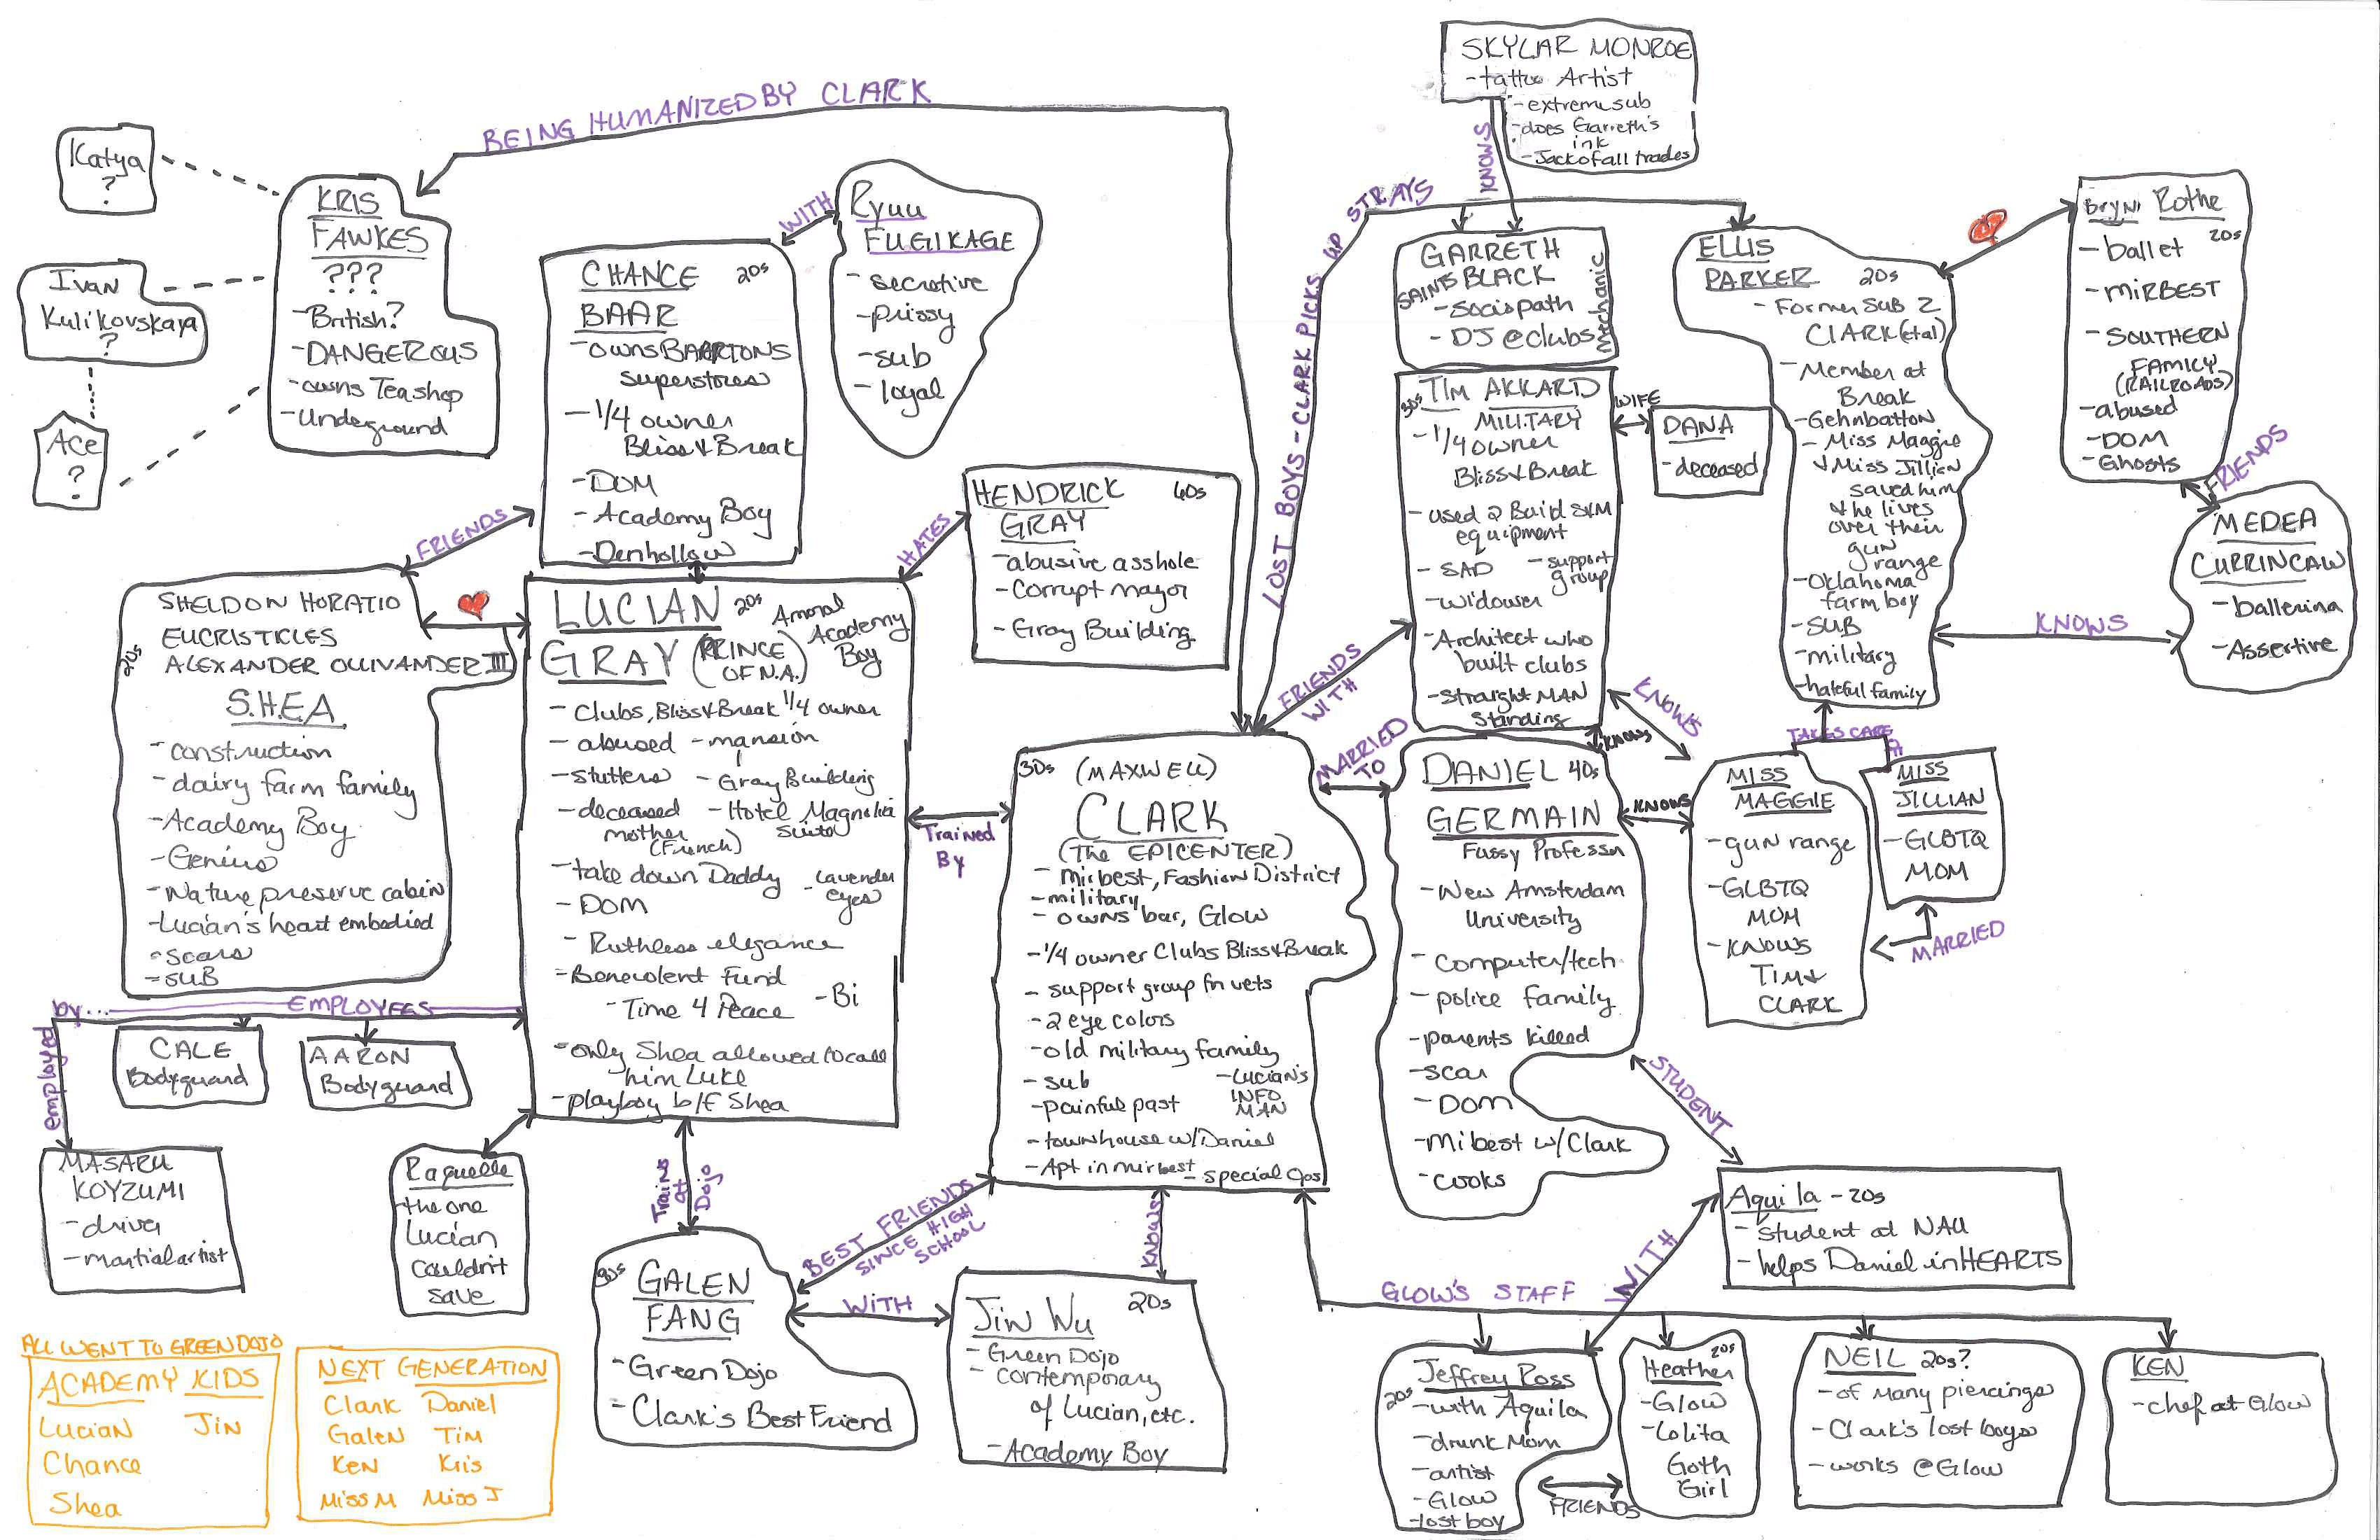 SKYLAR MONROE
-tattoo Artist
-extreme sub
-does Garreth's
ink
-Jack of all trades
KNOWS
BEING HUMANIZED BY CLARK
Katya
?
Ivan
Kulikovskaya
?
Ace
?
KRIS
FAWKES
???
-British?
-DANGEROUS
-owns Tea shop
-Underground
WITH
Ryuu
FUGIKAGE
-secretive
-prissy
-sub
-loyal
CHANCE 20s
BAAR
-owns BAARTONS
superstores
-1/4 owner
Bliss & Break
-DOM
-Academy Boy
-Denhollow
FRIENDS
HATES
HENDRICK 60s
GRAY
-abusive asshole
-Corrupt mayor
-Gray Building
LOST BOYS - CLARK PICKS UP STRAYS
GARRETH
SAINTS BLACK
-Sociopath
-DJ @ clubs
Mechanic
TIM AKKARD
30s
MILITARY
-1/4 owner
Bliss & Break
-used 2 Build S&M
equipment
-SAD -support
group
-widower
-Architect who
built clubs
-straight MAN
Standing
WIFE
DANA
-deceased
ELLIS
PARKER 20s
-Former SUB 2
CLARK (et al)
-Member at
Break
-Gehnbatton
-Miss Maggie
& Miss Jillian
saved him
& he lives
over their
gun
range
-Oklahoma
farm boy
-SUB
-military
-hateful family
Bryn Rothe
20s
-ballet
-MIRBEST
-SOUTHERN
FAMILY
(RAILROADS)
-abused
-DOM
-Ghosts
FRIENDS
MEDEA
CURRINCAW
-ballerina
-Assertive
KNOWS
SHELDON HORATIO
EUCRISTICLES
ALEXANDER OLLIVANDER III
20s
S.H.E.A
-construction
-dairy farm family
-Academy Boy
-Genius
-Nature preserve cabin
-Lucian's heart embodied
-scars
-SUB
LUCIAN 20s Amoral
Academy
Boy
GRAY (PRINCE
OF N.A.)
-Clubs, Bliss & Break 1/4 owner
-abused -mansion
-stutters -Gray Building
-deceased -Hotel Magnolia
mother suite
(French)
-take down Daddy -lavender
eyes
-DOM
-Ruthless elegance
-Benevolent Fund
-Time 4 Peace -Bi
-only Shea allowed to call
him Luke
-playboy b/f Shea
Trained
By
FRIENDS
WITH
MARRIED
TO
30s (MAXWELL)
CLARK
(The EPICENTER)
-Mirbest, Fashion District
-military
-owns bar, Glow
-1/4 owner Clubs Bliss & Break
-support group for vets
-2 eye colors
-old military family
-sub -Lucian's
INFO
MAN
-painful past
-townhouse w/Daniel
-Apt in mirbest -special Ops
KNOWS
KNOWS
DANIEL 40s
GERMAIN
Fussy Professor
-New Amsterdam
University
-Computer/tech
-police family
-parents killed
-scar
-DOM
-Mibest w/Clark
-cooks
KNOWS
TAKES CARE OF
MISS
MAGGIE
-gun range
-GLBTQ
MOM
-KNOWS
TIM &
CLARK
MISS
JILLIAN
-GLBTQ
MOM
MARRIED
STUDENT
Aquila - 20s
-Student at NAU
-helps Daniel in HEARTS
WITH
by... EMPLOYEES
employed
CALE
Bodyguard
AARON
Bodyguard
MASARU
KOYZUMI
-driver
-martial artist
Raquelle
the one
Lucian
couldn't
save
Trains
at
Dojo
BEST FRIENDS
SINCE HIGH
SCHOOL
KNOWS
30s GALEN
FANG
-Green Dojo
-Clark's Best Friend
WITH
20s
Jin Wu
-Green Dojo
-contemporary
of Lucian, etc.
-Academy Boy
GLOW'S STAFF
Jeffrey Ross
20s
-with Aquila
-drunk Mom
-artist
-Glow
-lost boy
FRIENDS
20s
Heather
-Glow
-Lolita
Goth
Girl
NEIL 20s?
-of Many piercings
-Clark's lost boys
-works @ Glow
KEN
-chef at Glow
ALL WENT TO GREEN DOJO
ACADEMY KIDS
Lucian Jin
Chance
Shea
NEXT GENERATION
Clark Daniel
Galen Tim
Ken Kris
Miss M Miss J